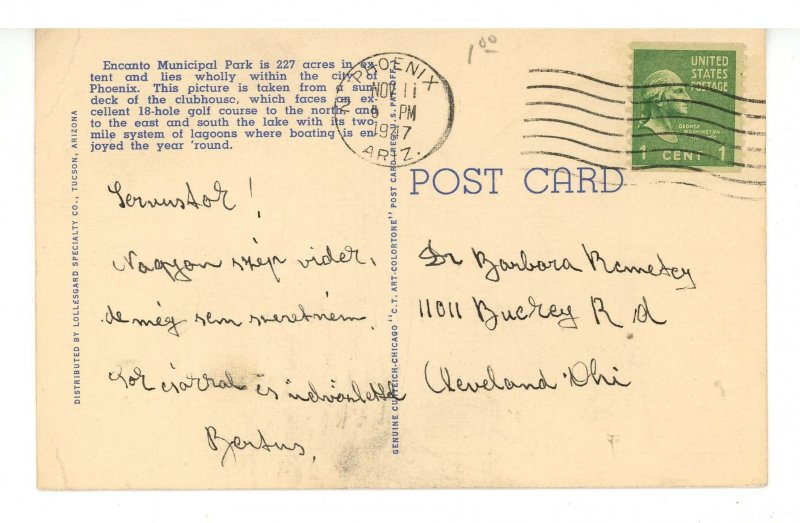 Encanto Municipal Park is 227 acres in ex-
tent and lies wholly within the city of
Phoenix. This picture is taken from a sun
deck of the clubhouse, which faces an ex-
cellent 18-hole golf course to the north and
to the east and south the lake with its two-
mile system of lagoons where boating is en-
joyed the year 'round.
1 00
PHOENIX
NOV 11
PM
1947
ARIZ.
UNITED
STATES
POSTAGE
GEORGE
WASHINGTON
1 CENT 1
POST CARD
DISTRIBUTED BY LOLLESGARD SPECIALTY CO., TUCSON, ARIZONA
GENUINE CURTEICH-CHICAGO "C.T. ART-COLORTONE" POST CARD (REG. U.S. PAT. OFF.)
Servustok!
Nagyon szép vidék,
de még sem szeretném.
Sok csókkal és üdvözlettel
Bertus.
Dr Barbara Remetey
11011 Buckey Rd
Cleveland Ohi